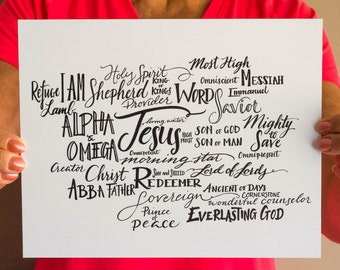 Most High
Holy Spirit
KING OF KINGS
Omniscient
MESSIAH
Refuge
I AM
Shepherd
Emmanuel
Provider
WORD
Savior
Lamb
ALPHA & OMEGA
living water
Jesus
HIGH PRIEST
SON OF GOD
SON OF MAN
Mighty to Save
Omnipotent
Omnipresent
morning star
Creator
Christ
Lord of Lords
ABBA FATHER
REDEEMER
ANCIENT OF DAYS
CORNERSTONE
Sovereign
wonderful counselor
Prince of Peace
EVERLASTING GOD